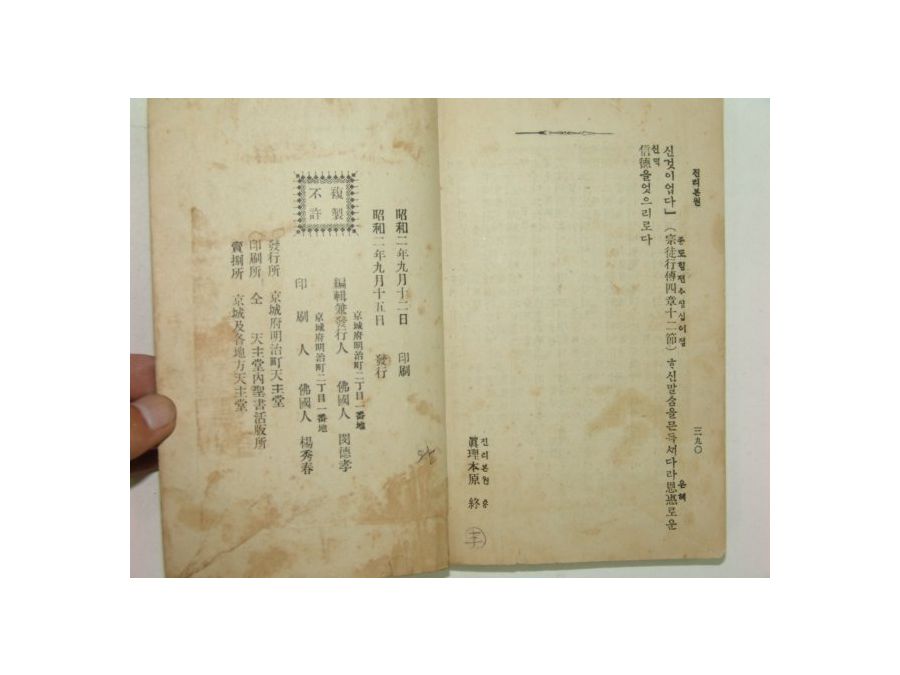 진리본원
三九〇
신것이업다』(宗徒行傳四章十二節)ᄒᆞ신말ᄉᆞᆷ을믄득ᄭᅢ다라恩惠로운
종도힝젼ᄉᆞ쟝십이졀
은혜
信德을엇으리로다
신덕
眞理本原 終
진리본원 죵
昭和二年九月十二日 印刷
昭和二年九月十五日 發行
複製
不許
京城府明治町二丁目一番地
編輯兼發行人 佛國人 閔德孝
京城府明治町二丁目一番地
印刷人 佛國人 楊秀春
發行所 京城府明治町天主堂
印刷所 仝 天主堂內聖書活版所
賣捌所 京城及各地方天主堂